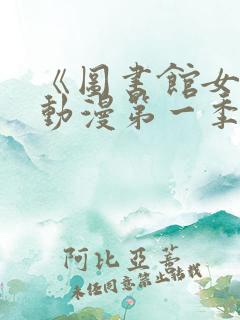 《圖書館女
動漫第一季
阿比亞蓄
未经同意禁止转载